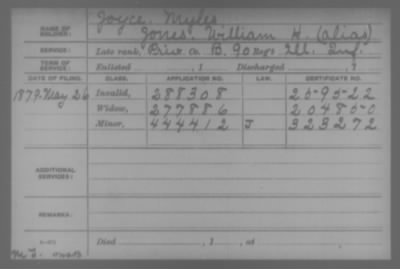 Joyce, Myles
NAME OF SOLDIER: Jones, William H. (alias)
SERVICE: Late rank, Priv. Co. B, 90 Reg't Ill. Inf.
TERM OF SERVICE: Enlisted , 1 Discharged , 1
DATE OF FILING. CLASS. APPLICATION NO. LAW. CERTIFICATE NO.
1879 May 26 Invalid, 288308 259522
Widow, 277886 204850
Minor, 444412 J 323272
ADDITIONAL SERVICES:
REMARKS:
Died , 1 , at